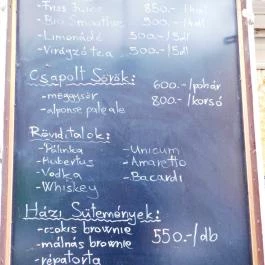 -Friss Juice 850.-
-Bio Smoothie 900.-/4dl
-Limonádé 500.-/5dl
-Virágzó tea 500.-/5dl
Csapolt Sörök:
-meggysör 600.-/pohár
-alponse pale ale 800.-/korsó
Röviditalok:
-Pálinka -Unicum
-Hubertus -Amaretto
-Vodka -Bacardi
-Whiskey
Házi Sütemények:
-csokis brownie
-málnás brownie 550.-/db
-répatorta